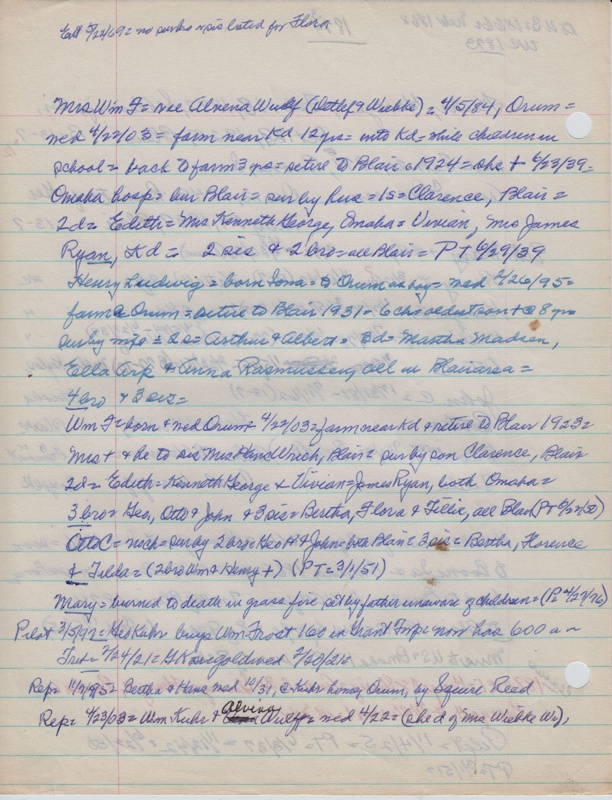 Est 5/22/69 = no purbro or sis listed for Flora
Mrs Wm F = nee Alvena Wulf (Detlef & Wiebke) = 4/5/84, Orum =
med 4/22/03 = farm near Kd 12 yrs = into Kd = while children in
school = back to farm 3 yrs = retire to Blair c 1924 = she + 6/23/39 =
Omaha hosp = bur Blair = sur by hus = 1s = Clarence, Blair =
2d = Edith = Mrs Kenneth George, Omaha = Vivian, Mrs James
Ryan, Kd = 2 sis & 2 bro = all Blair = PT 6/29/39
Henry Ludwig = born Iowa = to Orum as boy = med 2/26/95 =
farm @ Orum = retire to Blair 1931 = 6 chs = 1 son + @ 8 yrs
surby wife = 2s = Arthur & Albert = 3d = Martha Madsen,
Ella Arp & Anna Rasmussen, all in Blair area =
4 bro & 3 sis =
Wm F = born & med Orum 4/22/03 = farm near Kd & retire to Blair 1923 =
Mrs + & he to sis Mrs Hans Wrich, Blair = surby son Clarence, Blair
2d = Edith = Kenneth George & Vivian = James Ryan, both Omaha =
3 bro = Geo, Otto & John & 3 sis = Bertha, Flora & Tillie, all Blair (PT 6/22/50)
Otto C = surby 2 bro = Geo H & John = both Blair = 3 sis = Bertha, Florence
& Tilda = (2 bro Wm & Henry +) (PT = 3/1/51)
Mary = burned to death in grass fire set by father unaware of children = (P = 4/27/76)
Pilot 3/5/92 = Ged Kuhr buys Wm Frost 160 in Grant Twp = now has 600 a ~
Trib = 2/24/21 = G K = goldwed 2/20/21 =
Rep = 11/7/95 = Bertha & Hans med 10/31, @ Kuhr home, Orum, by Squire Reed
Rep = 4/23/03 = Wm Kuhr & Alvena Wulff = med 4/22 = (she d of Mrs Wiebke W),